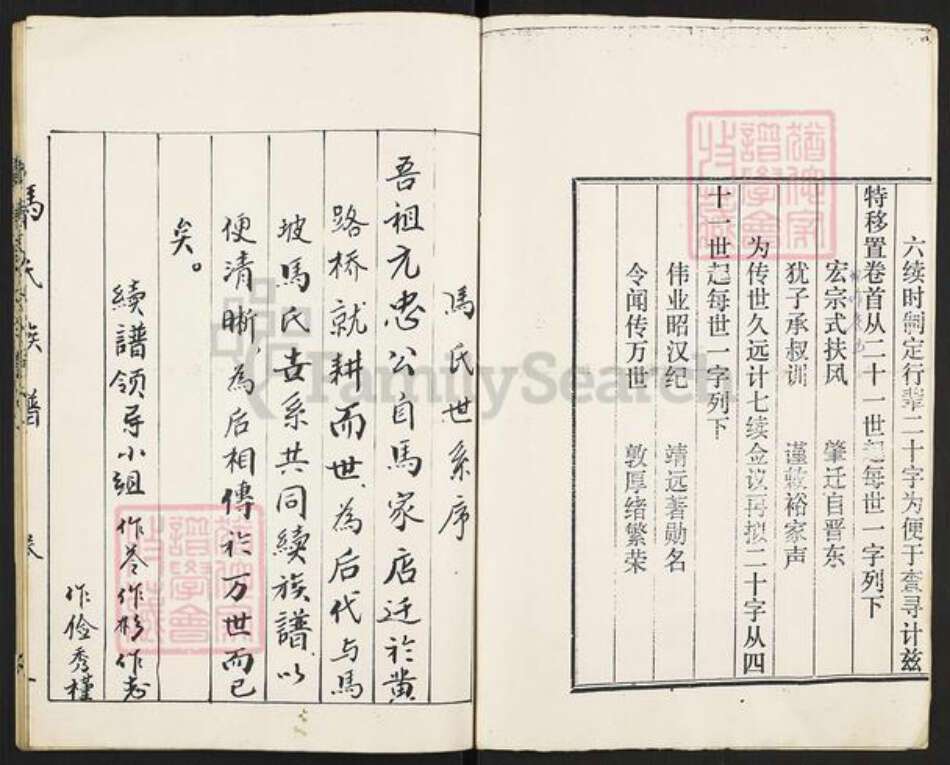 六续时制定行辈二十字为便于查寻计兹
特移置卷首从二十一世起每世一字列下
宏宗式扶风 肇迁自晋东
犹子承叔训 谨敕裕家声
为传世久远计七续佥议再拟二十字从四
十一世起每世一字列下
伟业昭汉纪 靖远著勋名
令闻传万世 敦厚绪繁荣
馬氏世系序
吾祖元忠公自馬家店迁於黄
路桥就耕而世為后代与馬
坡馬氏世系共同續族譜以
便清晰,為后相傳於万世而已
矣。
續譜领导小组 作 作彬作
作俭秀槿
馬氏族譜
FamilySearch